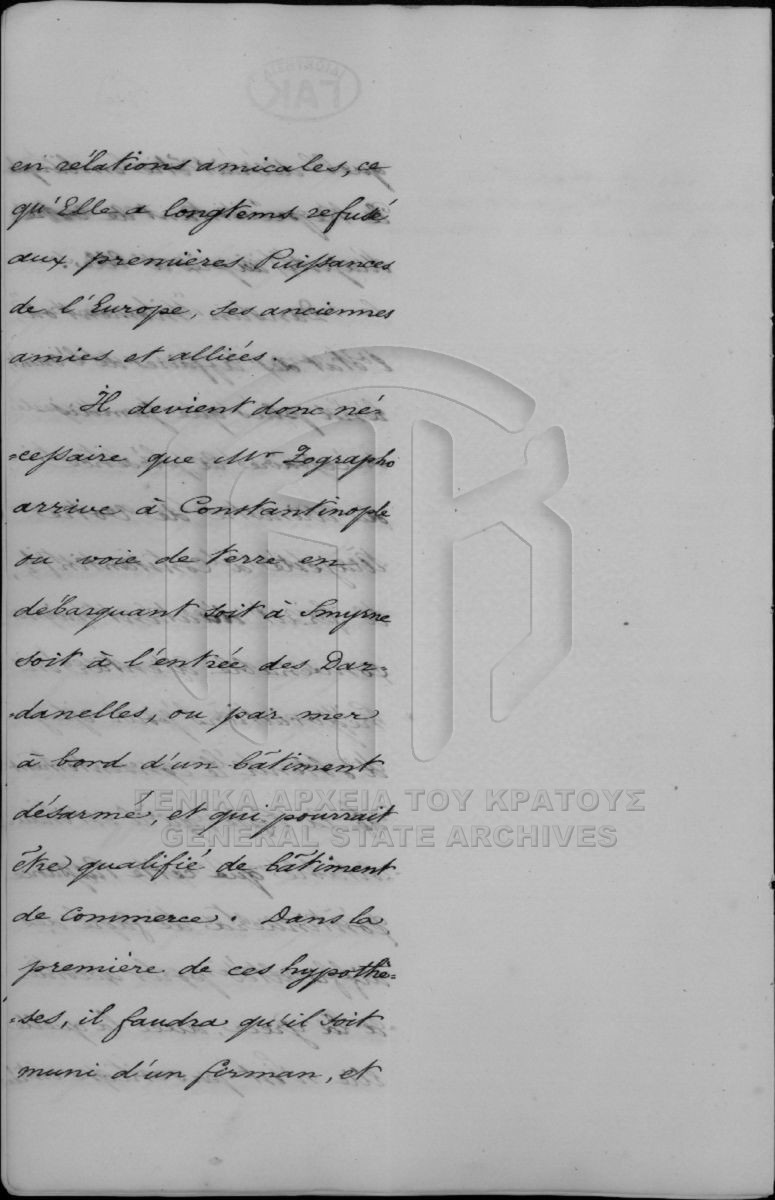 en rélations amicales, ce
qu'Elle a longtems refusé
aux premières Puissances
de l'Europe, ses anciennes
amies et alliées.
Il devient donc né=
=cessaire que Mr Zographo
arrive à Constantinople
ou voie de terre en
débarquant soit à Smyrne
soit à l'entrée des Dar=
=danelles, ou par mer
à bord d'un bâtiment
désarmé, et qui pourrait
être qualifié de bâtiment
de Commerce. Dans la
première de ces hypothè=
=ses, il faudra qu'il soit
muni d'un firman, et
ΓΕΝΙΚΑ ΑΡΧΕΙΑ ΤΟΥ ΚΡΑΤΟΥΣ
GENERAL STATE ARCHIVES